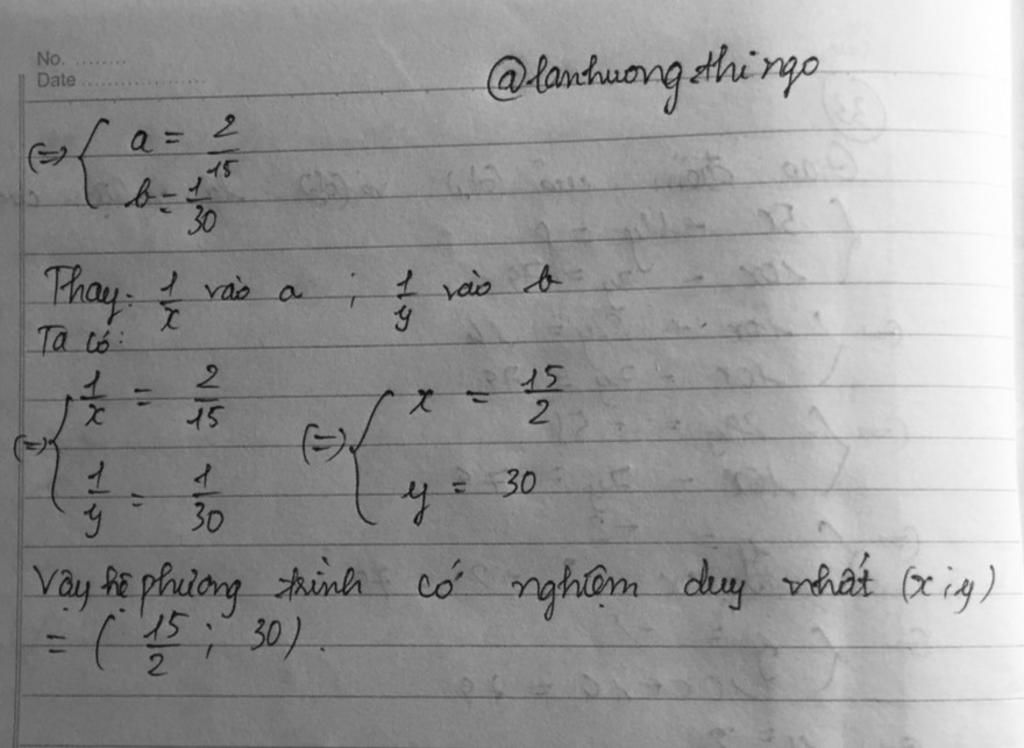 No. ........
Date ..................
@lanhuongthingo
(=) { a = 2/15
b = 1/30
Thay: 1/x vào a ; 1/y vào b
Ta có:
(=) { 1/x = 2/15 (=) { x = 15/2
1/y = 1/30 y = 30
Vậy hệ phương trình có nghiệm duy nhất (x;y)
= ( 15/2 ; 30 ).